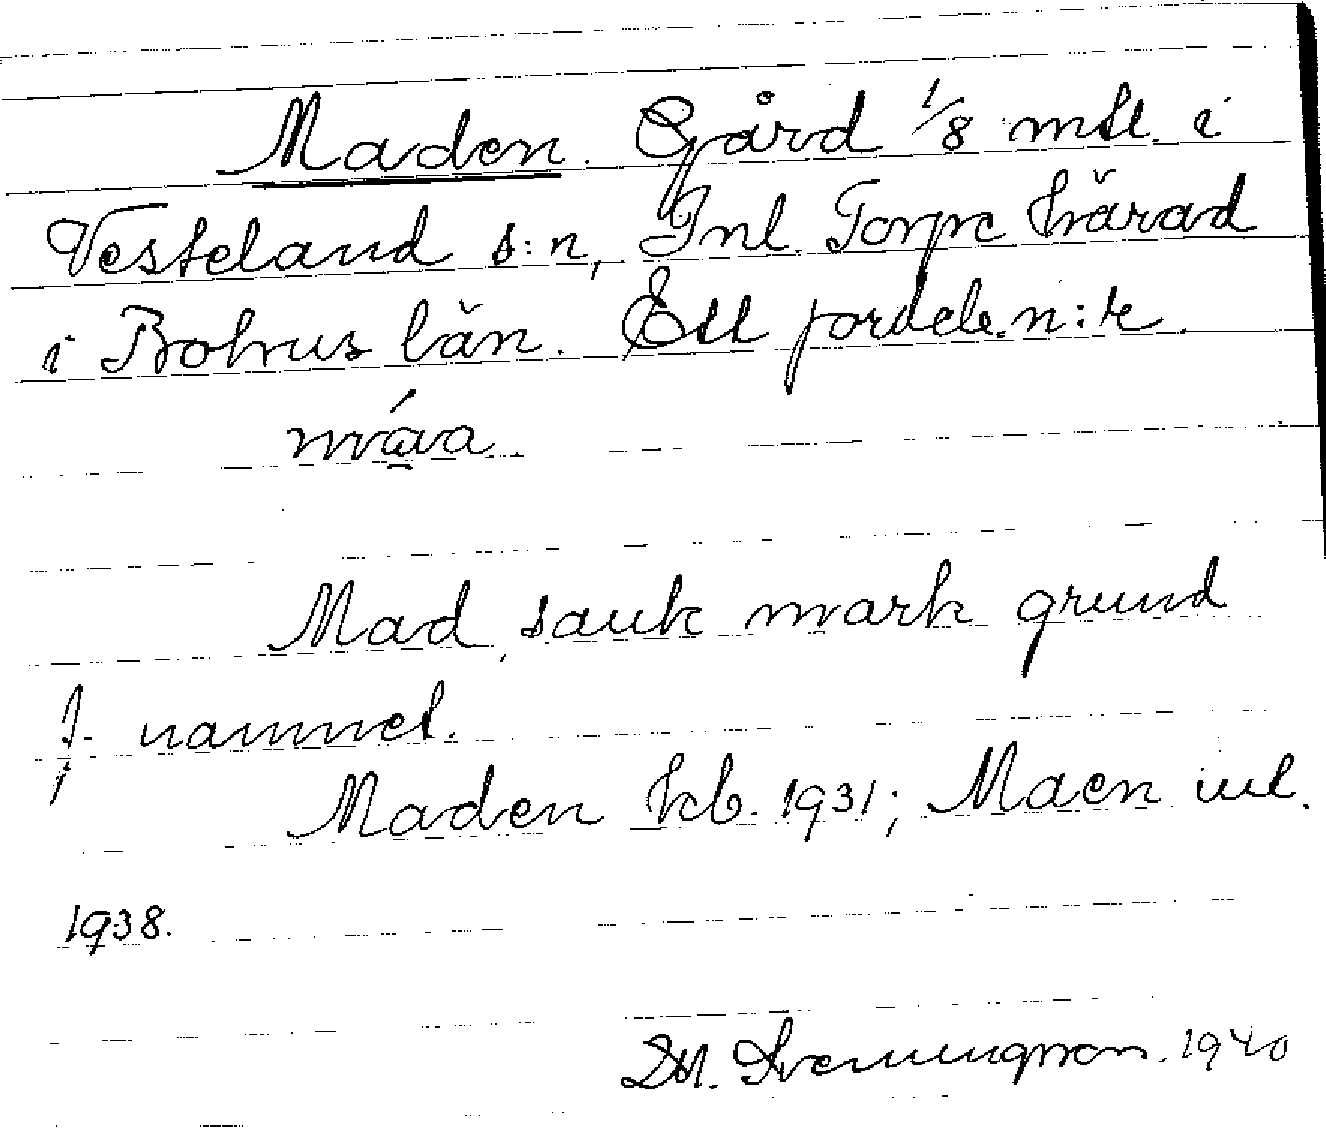 Maden. Gård 1/8 mtl. i
Vesteland s:n, Inl. Torpe härad
i Bohus län. Ett jordebs.n:r.
Mad, sank mark grund
f. namnet.
Maden hcb. 1931; Maen utl.
1938.
D.M. Svenningsson. 1940